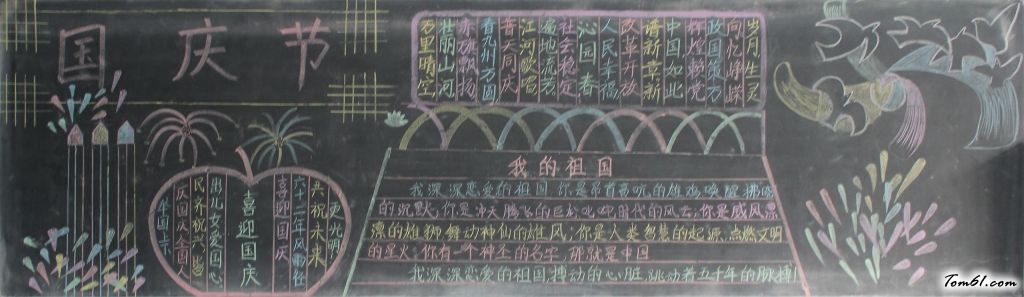 国庆节
岁月生灵
向忆峥嵘
改国策万
辉煌赖党
中国如此
谱新章新
改革开放
人民幸福
沁园春
社会稳定
遍地流芳
江河歌唱
普天同庆
看九州方圆
赤旗飘扬
壮丽山河
万里晴空
我的祖国
我深深恋爱的祖国,你是昂首高吭的雄鸡唤醒拂晓
的沉默;你是冲天腾飞的巨龙叱咤时代的风云;你是威风凛
凛的雄狮舞动神州的雄风;你是人类智慧的起源,点燃文明
的星火;你有一个神圣的名字,那就是中国
我深深恋爱的祖国,搏动的心脏,跳动着五千年的脉搏!
更光明
共祝未来
六十二年风雨径
喜迎国庆
喜迎国庆
出儿女爱国心
民齐祝六
庆国庆全国人
Tom61.com